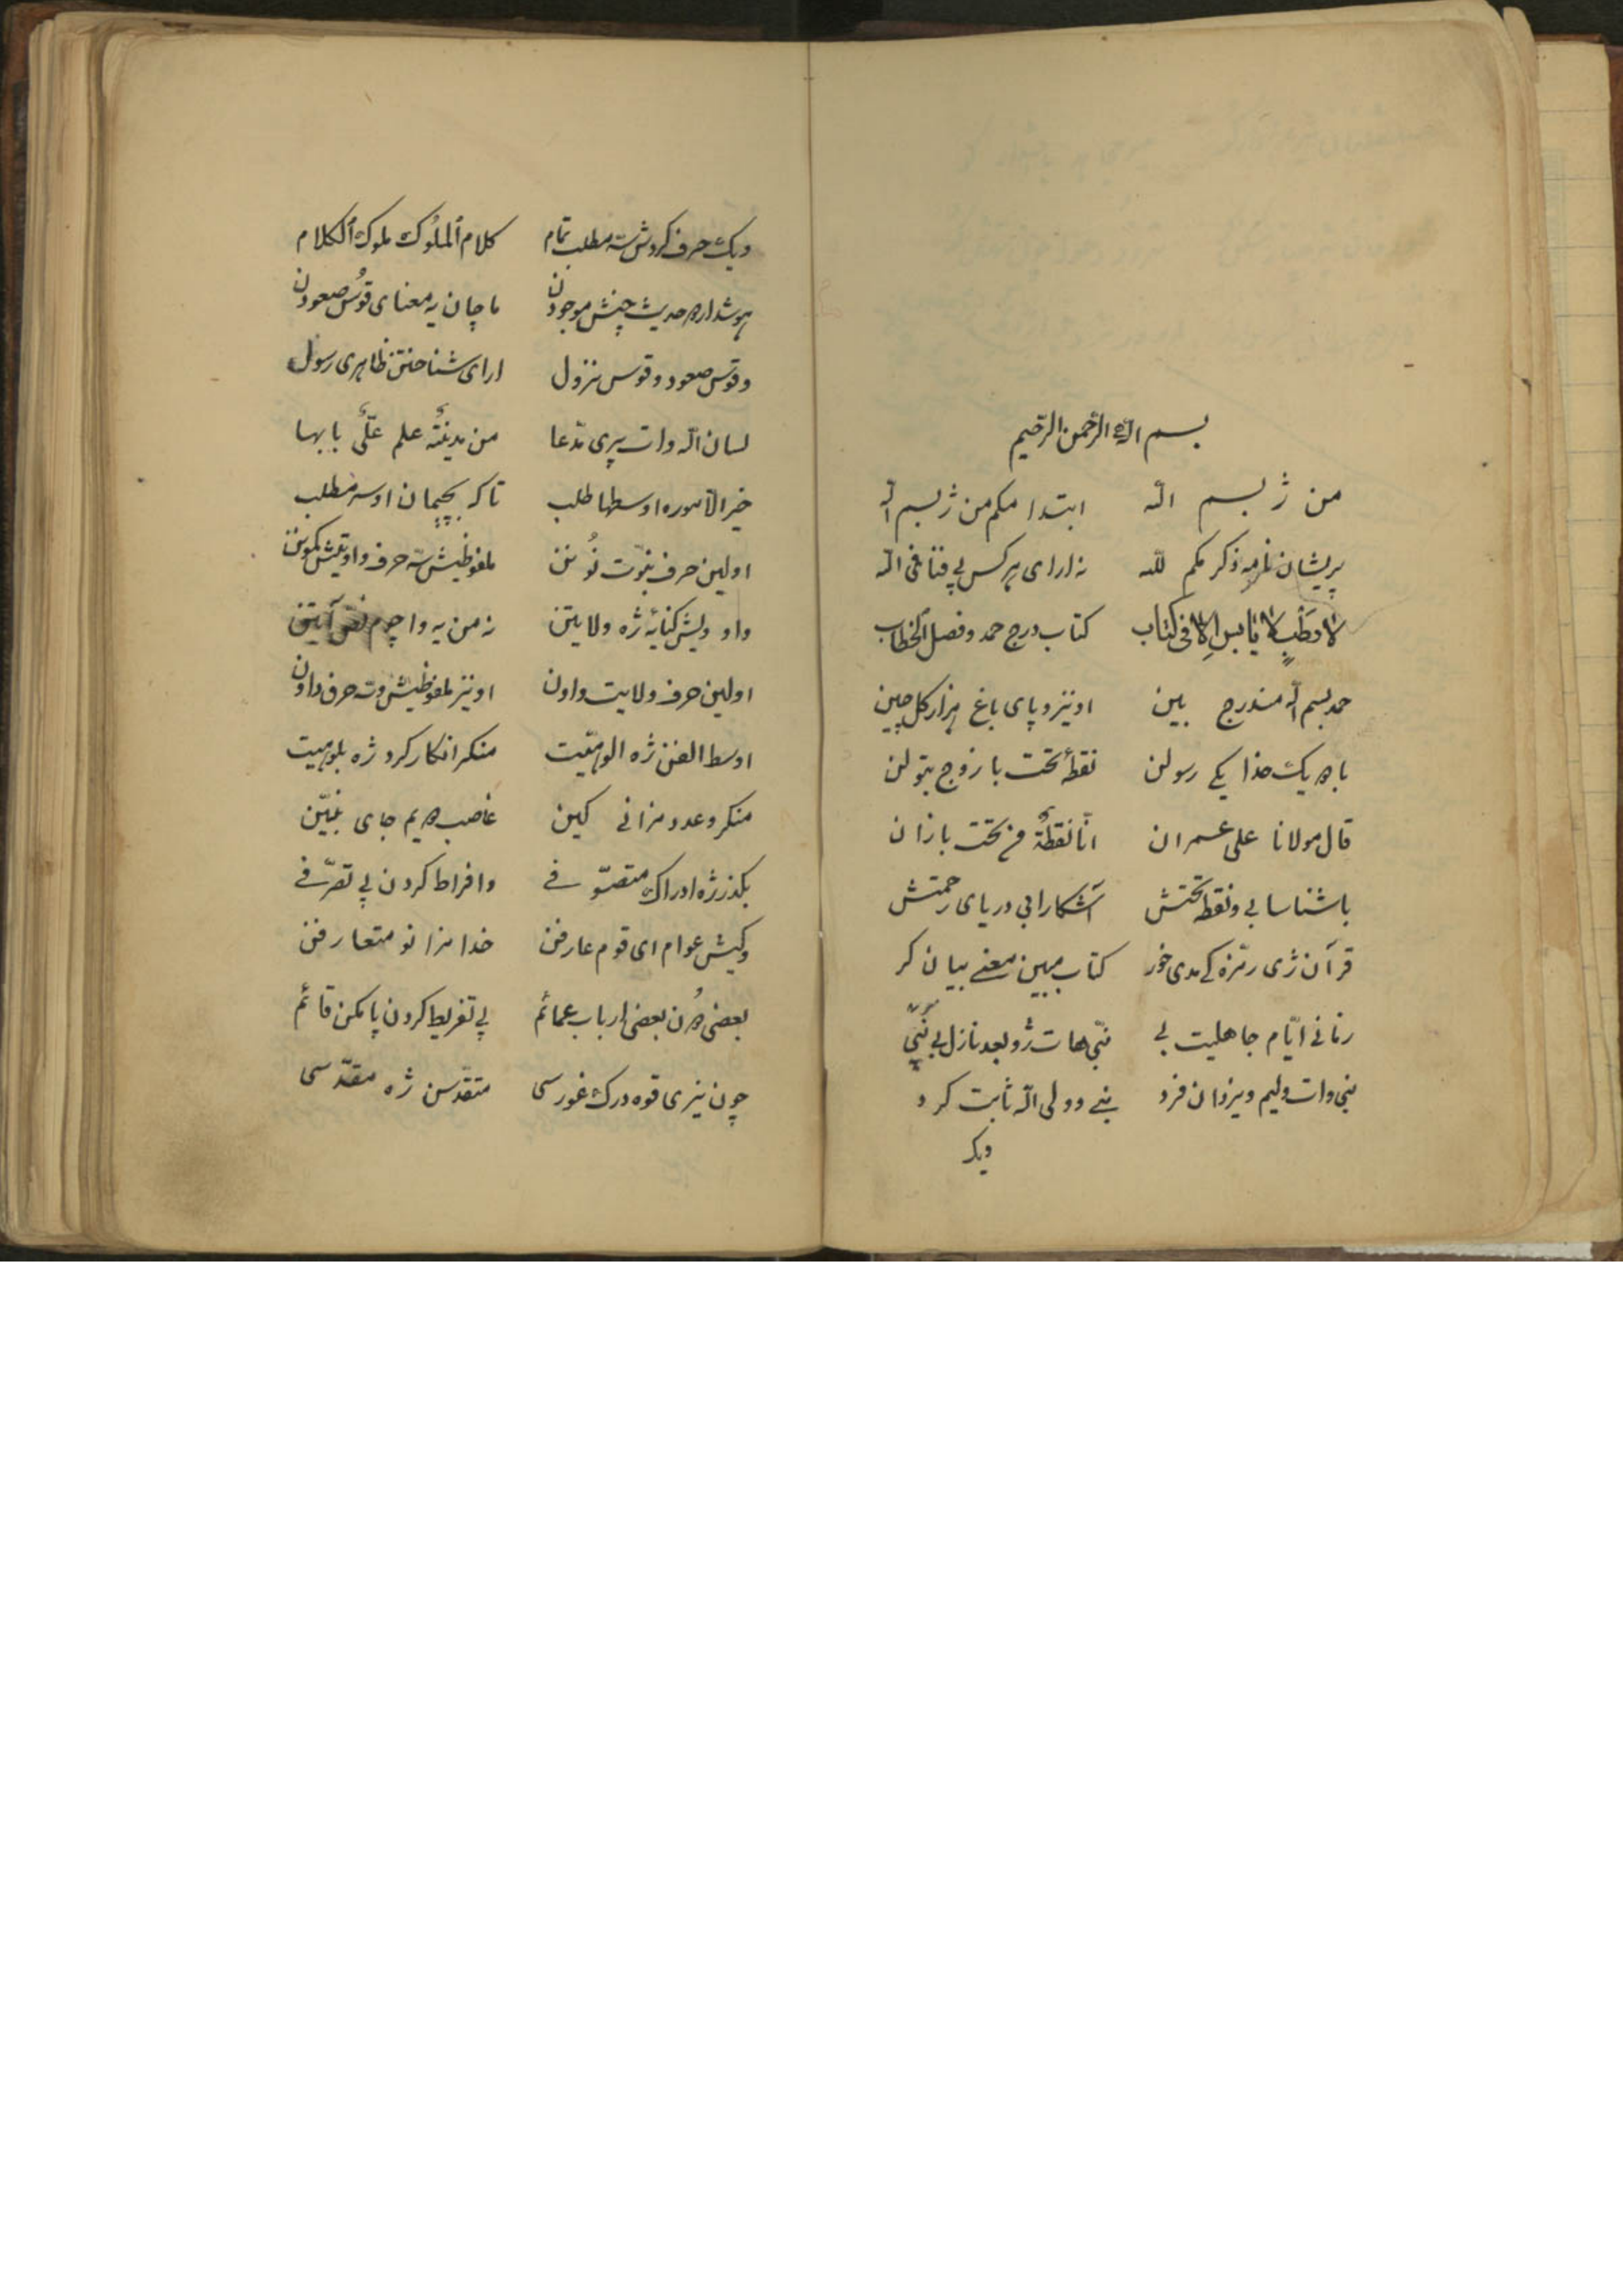 بسم الله الرحمن الرحیم
من ژ بسم الله ابتدا مکم من ژ بسم الله
پریشان نامه ذکر مکم لله نه ارای هر کس پی فنا فی الله
لا رطب لا یابس الا فی کتاب کتاب درج حمد و فصل الخطاب
حمد بسم الله مندرج بین او نیز و پای باغ هزار گل چین
با هه یک خدا یکی رسولن نقطهٔ تحت با زوج بتولن
قال مولانا علی عمران انّا نقطةٌ تحت با زان
با شناسا بی و نقطه تحتش آشکارا بی دریای رحمتش
قرآن ژی رمزه کی مدی خور کتاب مبین معنی بیان کر
زمانی ایّام جاهلیت بی نبّی هات ژو بعد نازل بی نبی
نبی وات ولیم و یزدان فرد نبی و ولی الله ثابت کرد
ویک
ویک حرف کردش سه مطلب تمام کلام الملوک ملوک الکلام
هوشدار هه حدیث چنیش موجودن ماچان یه معنای قوس صعودن
و قوس صعود و قوس نزول ارای شناختن ظاهری رسول
لسان الله وات پری مدعا من مدینةُ علم علیٌّ بابها
خیر الاموره اوسطها طلب تا که بچیمان او سه مطلب
اولین حرف نبوّت نُونن ملفوظیش سه حرف واو تیش مکونن
واو ویش کنایهٔ ژه ولایتن نه من یه واچوم نص آیتن
اولین حرف ولایت واون او نیز ملفوظیش وته حرف داون
اوسط الفن ژه الوهیّت منکر انکار کرد ژه بلوهیت
منکر و عدد مزانی کین غاصب هیم جای نبیّن
بگذر ژه ادراک متصوّفی و افراط کردن پی تصرّفی
و کیش عوام ای قوم عارفن خدا مزانو متعارفن
بعضی هُن بعضی ارباب عمائم پی تفریط کردن پا مکن قائم
چون نیزی قوه درک غورسی متقدسن ژه مقدّسی